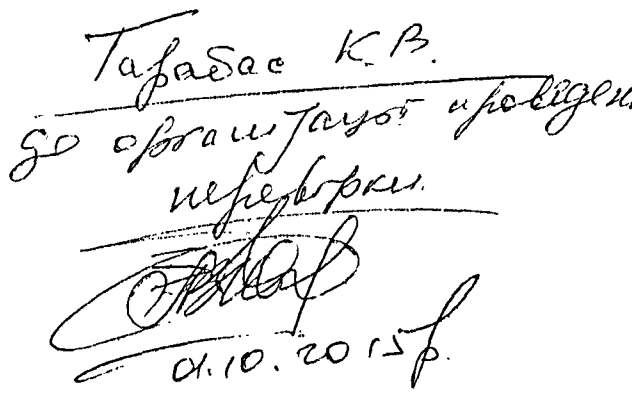 Тарабас К.В.
до організації проведен
перевірки.
01.10.2015р.